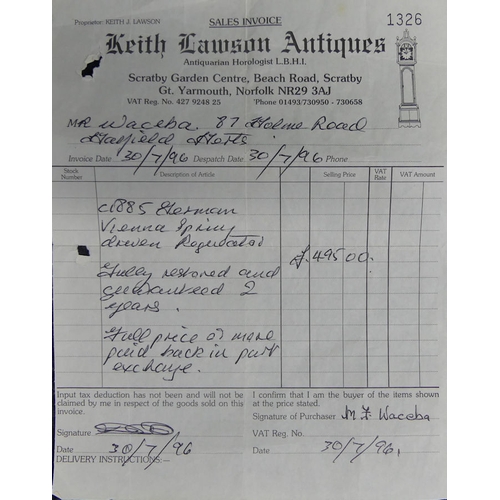 Proprietor: KEITH J. LAWSON
SALES INVOICE
1326
Keith Lawson Antiques
Antiquarian Horologist L.B.H.I.
Scratby Garden Centre, Beach Road, Scratby
Gt. Yarmouth, Norfolk NR29 3AJ
VAT Reg. No. 427 9248 25 'Phone 01493/730950 - 730658
MR Waceba. 87 Holme Road
Hatfield Herts
Invoice Date 30/7/96 Despatch Date 30/7/96 Phone
Stock Number Description of Article Selling Price VAT Rate VAT Amount
c1885 German
Vienna Spring
driven Regulator
£495 00.
Fully restored and
guaranteed 2
years.
Full price or more
paid back in part
exchange.
Input tax deduction has not been and will not be
claimed by me in respect of the goods sold on this
invoice.
Signature
Date 30/7/96
DELIVERY INSTRUCTIONS:—
I confirm that I am the buyer of the items shown
at the price stated.
Signature of Purchaser M F Waceba
VAT Reg. No.
Date 30/7/96.